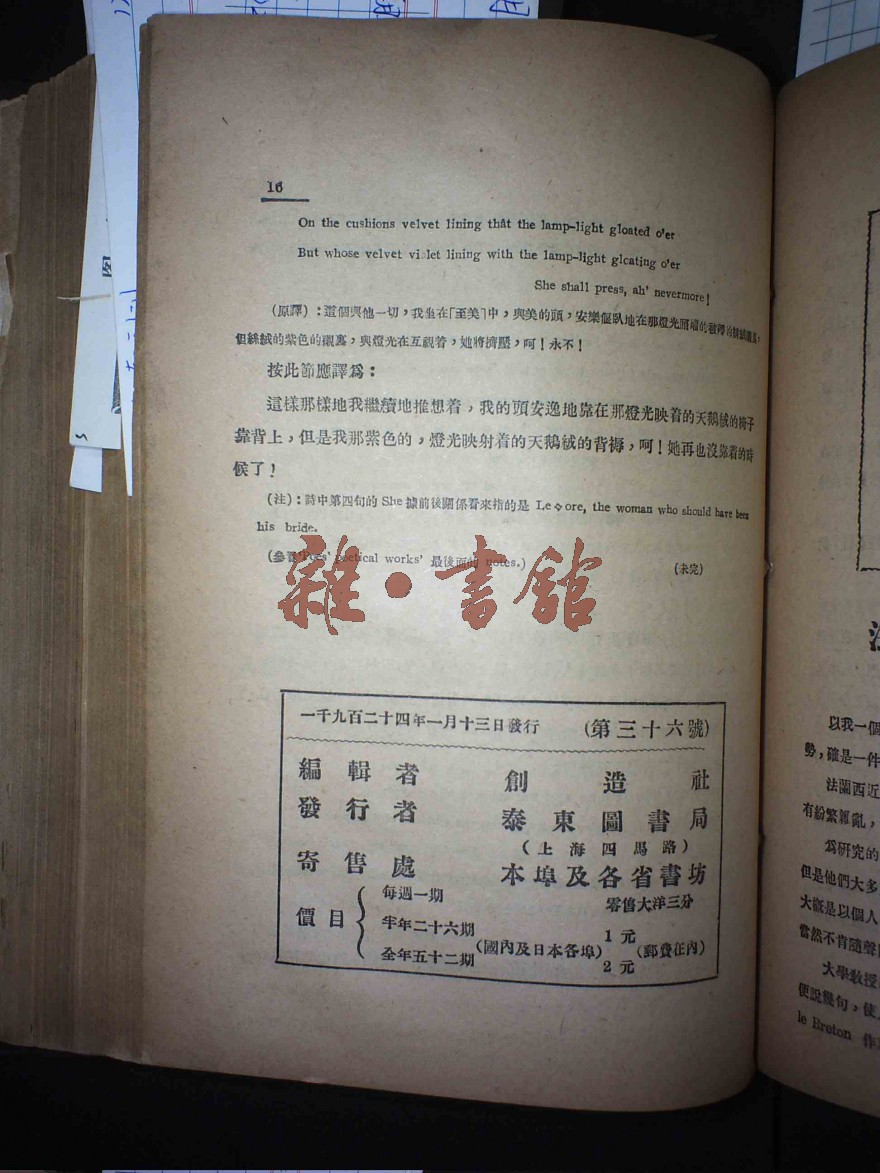 16
On the cushions velvet lining thât the lamp-light gloated o'er
But whose velvet vi let lining with the lamp-light glcating o'er
She shall press, ah' nevermore!
(原譯):這個與他一切,我坐在「至美」中,與美的頭,安樂偃臥地在那燈光
但絲絨的紫色的襯裏,與燈光在互視着,她將擠壓,呵!永不!
按此節應譯爲:
這樣那樣地我繼續地推想着,我的頭安逸地靠在那燈光映着的天鵝絨的椅子
靠背上,但是我那紫色的,燈光映射着的天鵝絨的背褥,呵!她再也沒靠着的時
候了!
(注):詩中第四句的 She 據前後關係看來指的是 Le ore, the woman who should have been
his bride.
(參看 poetical works' 最後面的 notes.)
(未完)
雜·書館
一千九百二十四年一月十三日發行 (第三十六號)
編輯者 創造社
發行者 泰東圖書局
(上海四馬路)
寄售處 本埠及各省書坊
價目
每週一期 零售大洋三分
半年二十六期 1元
(國內及日本各埠) (郵費在內)
全年五十二期 2元
以我一個
勢,確是一件
法蘭西近
有紛繁雜亂,
爲研究的
但是他們大多
大概是以個人
當然不肯隨聲
大學教授
便說幾句,使
le Breton 作